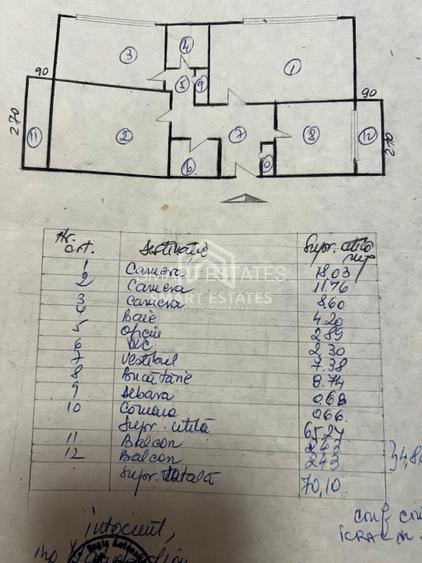 4
3
1
5
9
90
90
270
11
2
7
8
12
270
6
10
SMART ESTATES
SMART ESTATES
Nr. crt. Destinație Supr. utilă mp
1 Cameră 18.03
2 Camera 11.76
3 Camera 8.60
4 Baie 4.20
5 Oficiu 2.89
6 WC 2.30
7 Vestibul 7.38
8 Bucătărie 8.74
9 Debara 0.68
10 Cămara 0.66
Supr. utilă 65,24
11 Balcon 2,43
12 Balcon 2,43
Supr. totală 70,10
} 4,86
întocmit,
conf.